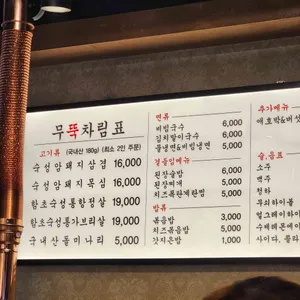 무뚝차림표
고기류 (국내산 180g) (최소 2인 주문)
숙성암돼지삼겹 16,000
숙성암돼지목심 16,000
함초숙성통항정살 19,000
함초숙성통가브리살 19,000
국내산돌미나리 5,000
면류
비빔국수 6,000
김치말이국수 6,000
물냉면&비빔냉면 5,000
곁들임메뉴
된장술밥 6,000
된장찌개 5,000
치즈폭탄계란찜 5,000
밥류
볶음밥 3,000
치즈볶음밥 5,000
갓지은밥 1,000
추가메뉴
애호박&버섯
술,음료
소주
맥주
청하
무의하이볼
얼그레이하이
수베레몬에이
사이다, 콜라